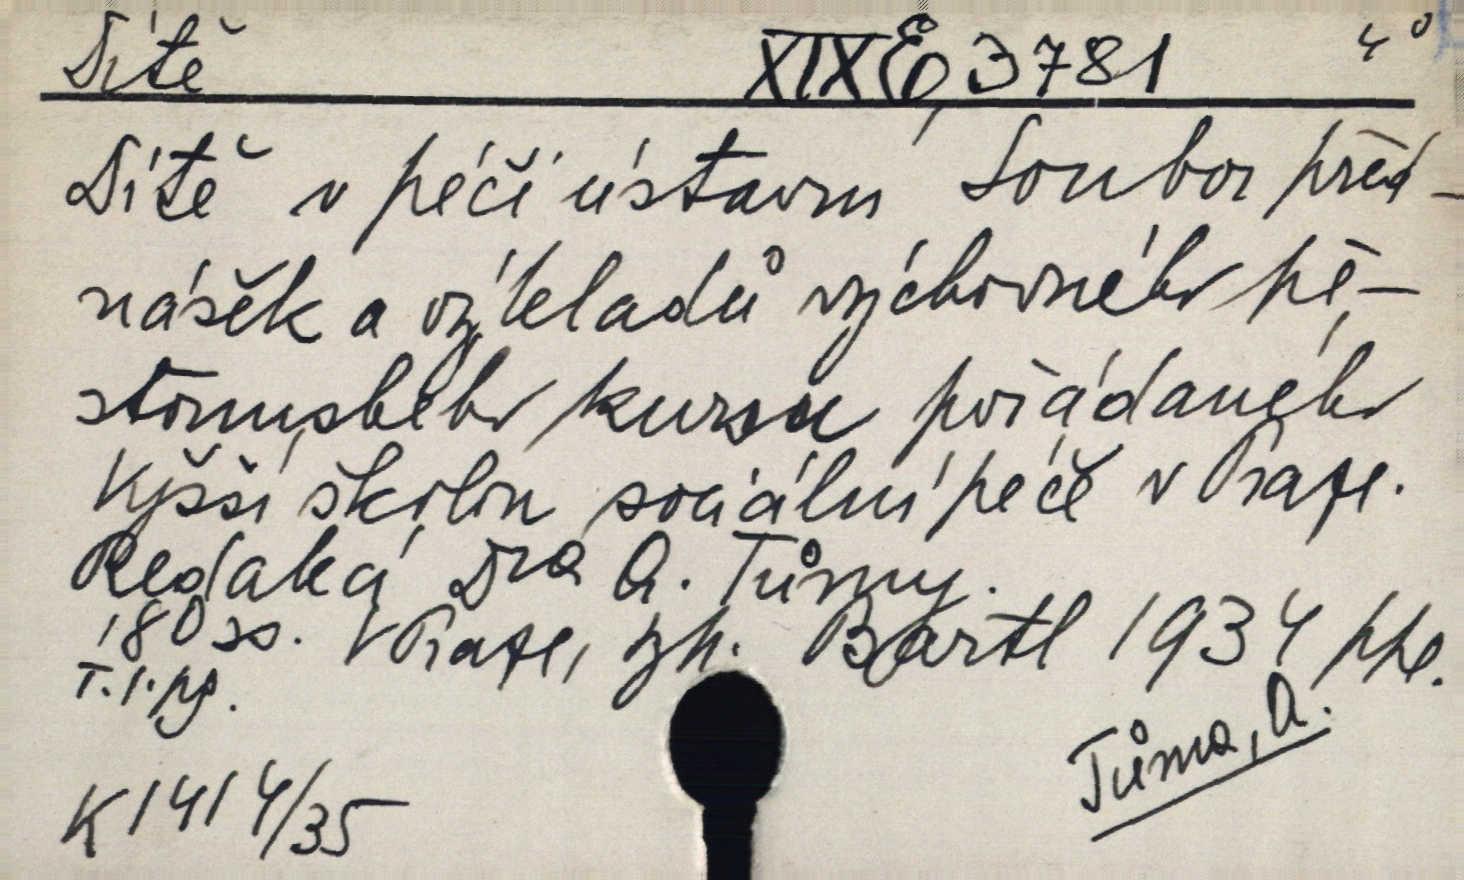 Dítě XIX E, 3781 4°
Dítě v péči ústavní Soubor před-
nášek a výkladů výchovného pě-
stounského kursu pořádaného
Vyšší školou sociální péče v Praze.
Redakcí Dra A. Tůmy.
180 ss. V Praze, kn. Bártl 1934 ppl.
T. 1. pg.
Tůma, A.
K 1414/35